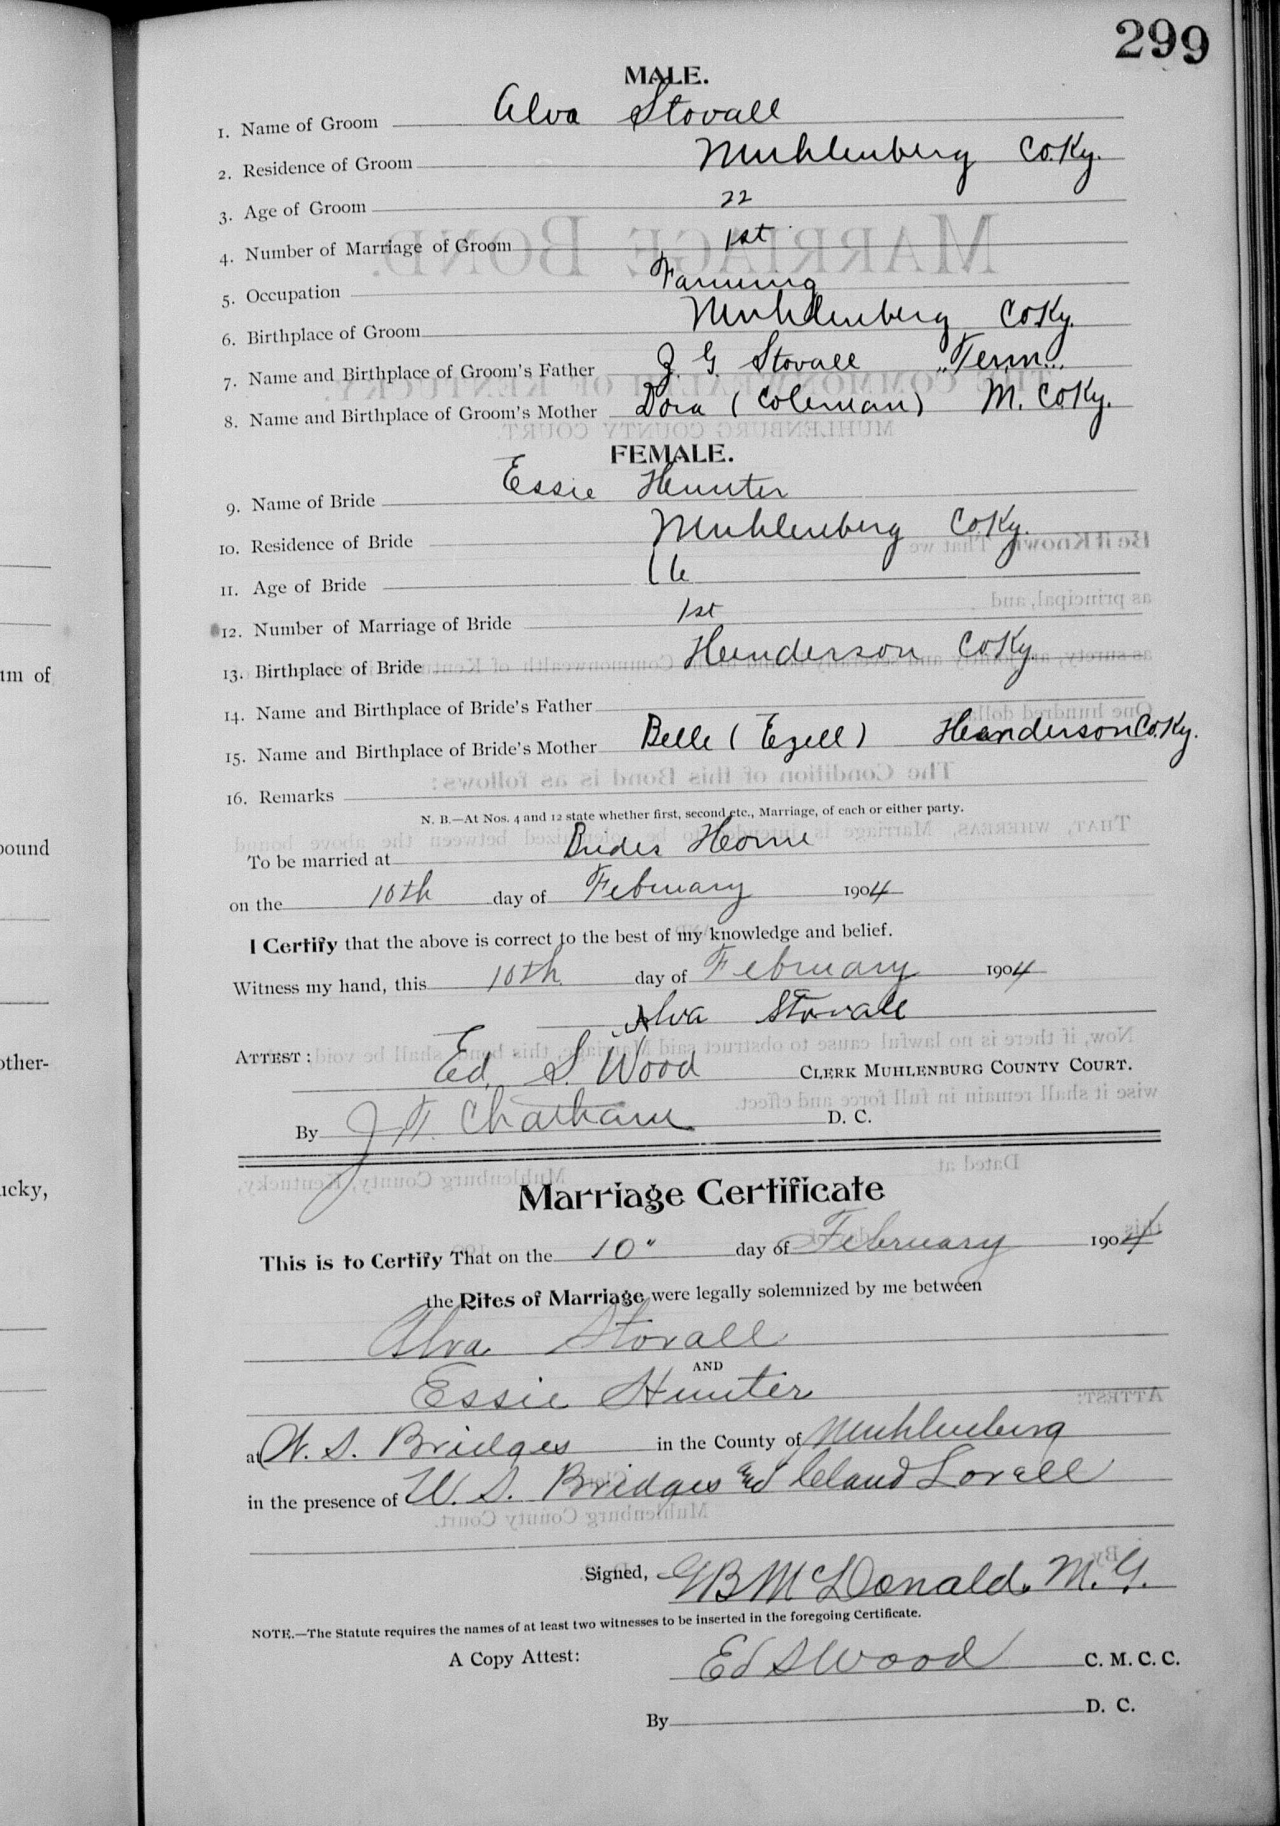 299
MALE.
1. Name of Groom Alva Stovall
2. Residence of Groom Muhlenberg Co. Ky.
3. Age of Groom 22
4. Number of Marriage of Groom 1st
5. Occupation Farming
6. Birthplace of Groom Muhlenberg Co Ky.
7. Name and Birthplace of Groom's Father J. G. Stovall "Tenn"
8. Name and Birthplace of Groom's Mother Dora (Coleman) M. Co Ky.
FEMALE.
9. Name of Bride Essie Hunter
10. Residence of Bride Muhlenberg Co Ky.
11. Age of Bride 16
12. Number of Marriage of Bride 1st
13. Birthplace of Bride Henderson Co Ky
14. Name and Birthplace of Bride's Father
15. Name and Birthplace of Bride's Mother Belle (Ezell) Henderson Co. Ky.
16. Remarks
N. B.—At Nos. 4 and 12 state whether first, second etc., Marriage, of each or either party.
To be married at Brides Home
on the 10th day of February 1904
I Certify that the above is correct to the best of my knowledge and belief.
Witness my hand, this 10th day of February 1904
Alva Stovall
ATTEST: Ed. S. Wood CLERK MUHLENBURG COUNTY COURT.
By J. T. Chatham D. C.
Marriage Certificate
This is to Certify That on the 10" day of February 1904
the Rites of Marriage were legally solemnized by me between
Alva Stovall
AND
Essie Hunter
at W. S. Bridges in the County of Muhlenberg
in the presence of W. S. Bridges and Cleland Lovell
Signed, GB McDonald. M. G.
NOTE.—The Statute requires the names of at least two witnesses to be inserted in the foregoing Certificate.
A Copy Attest: Ed S Wood C. M. C. C.
By D. C.